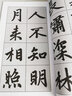 深林
人不知明
月来相照